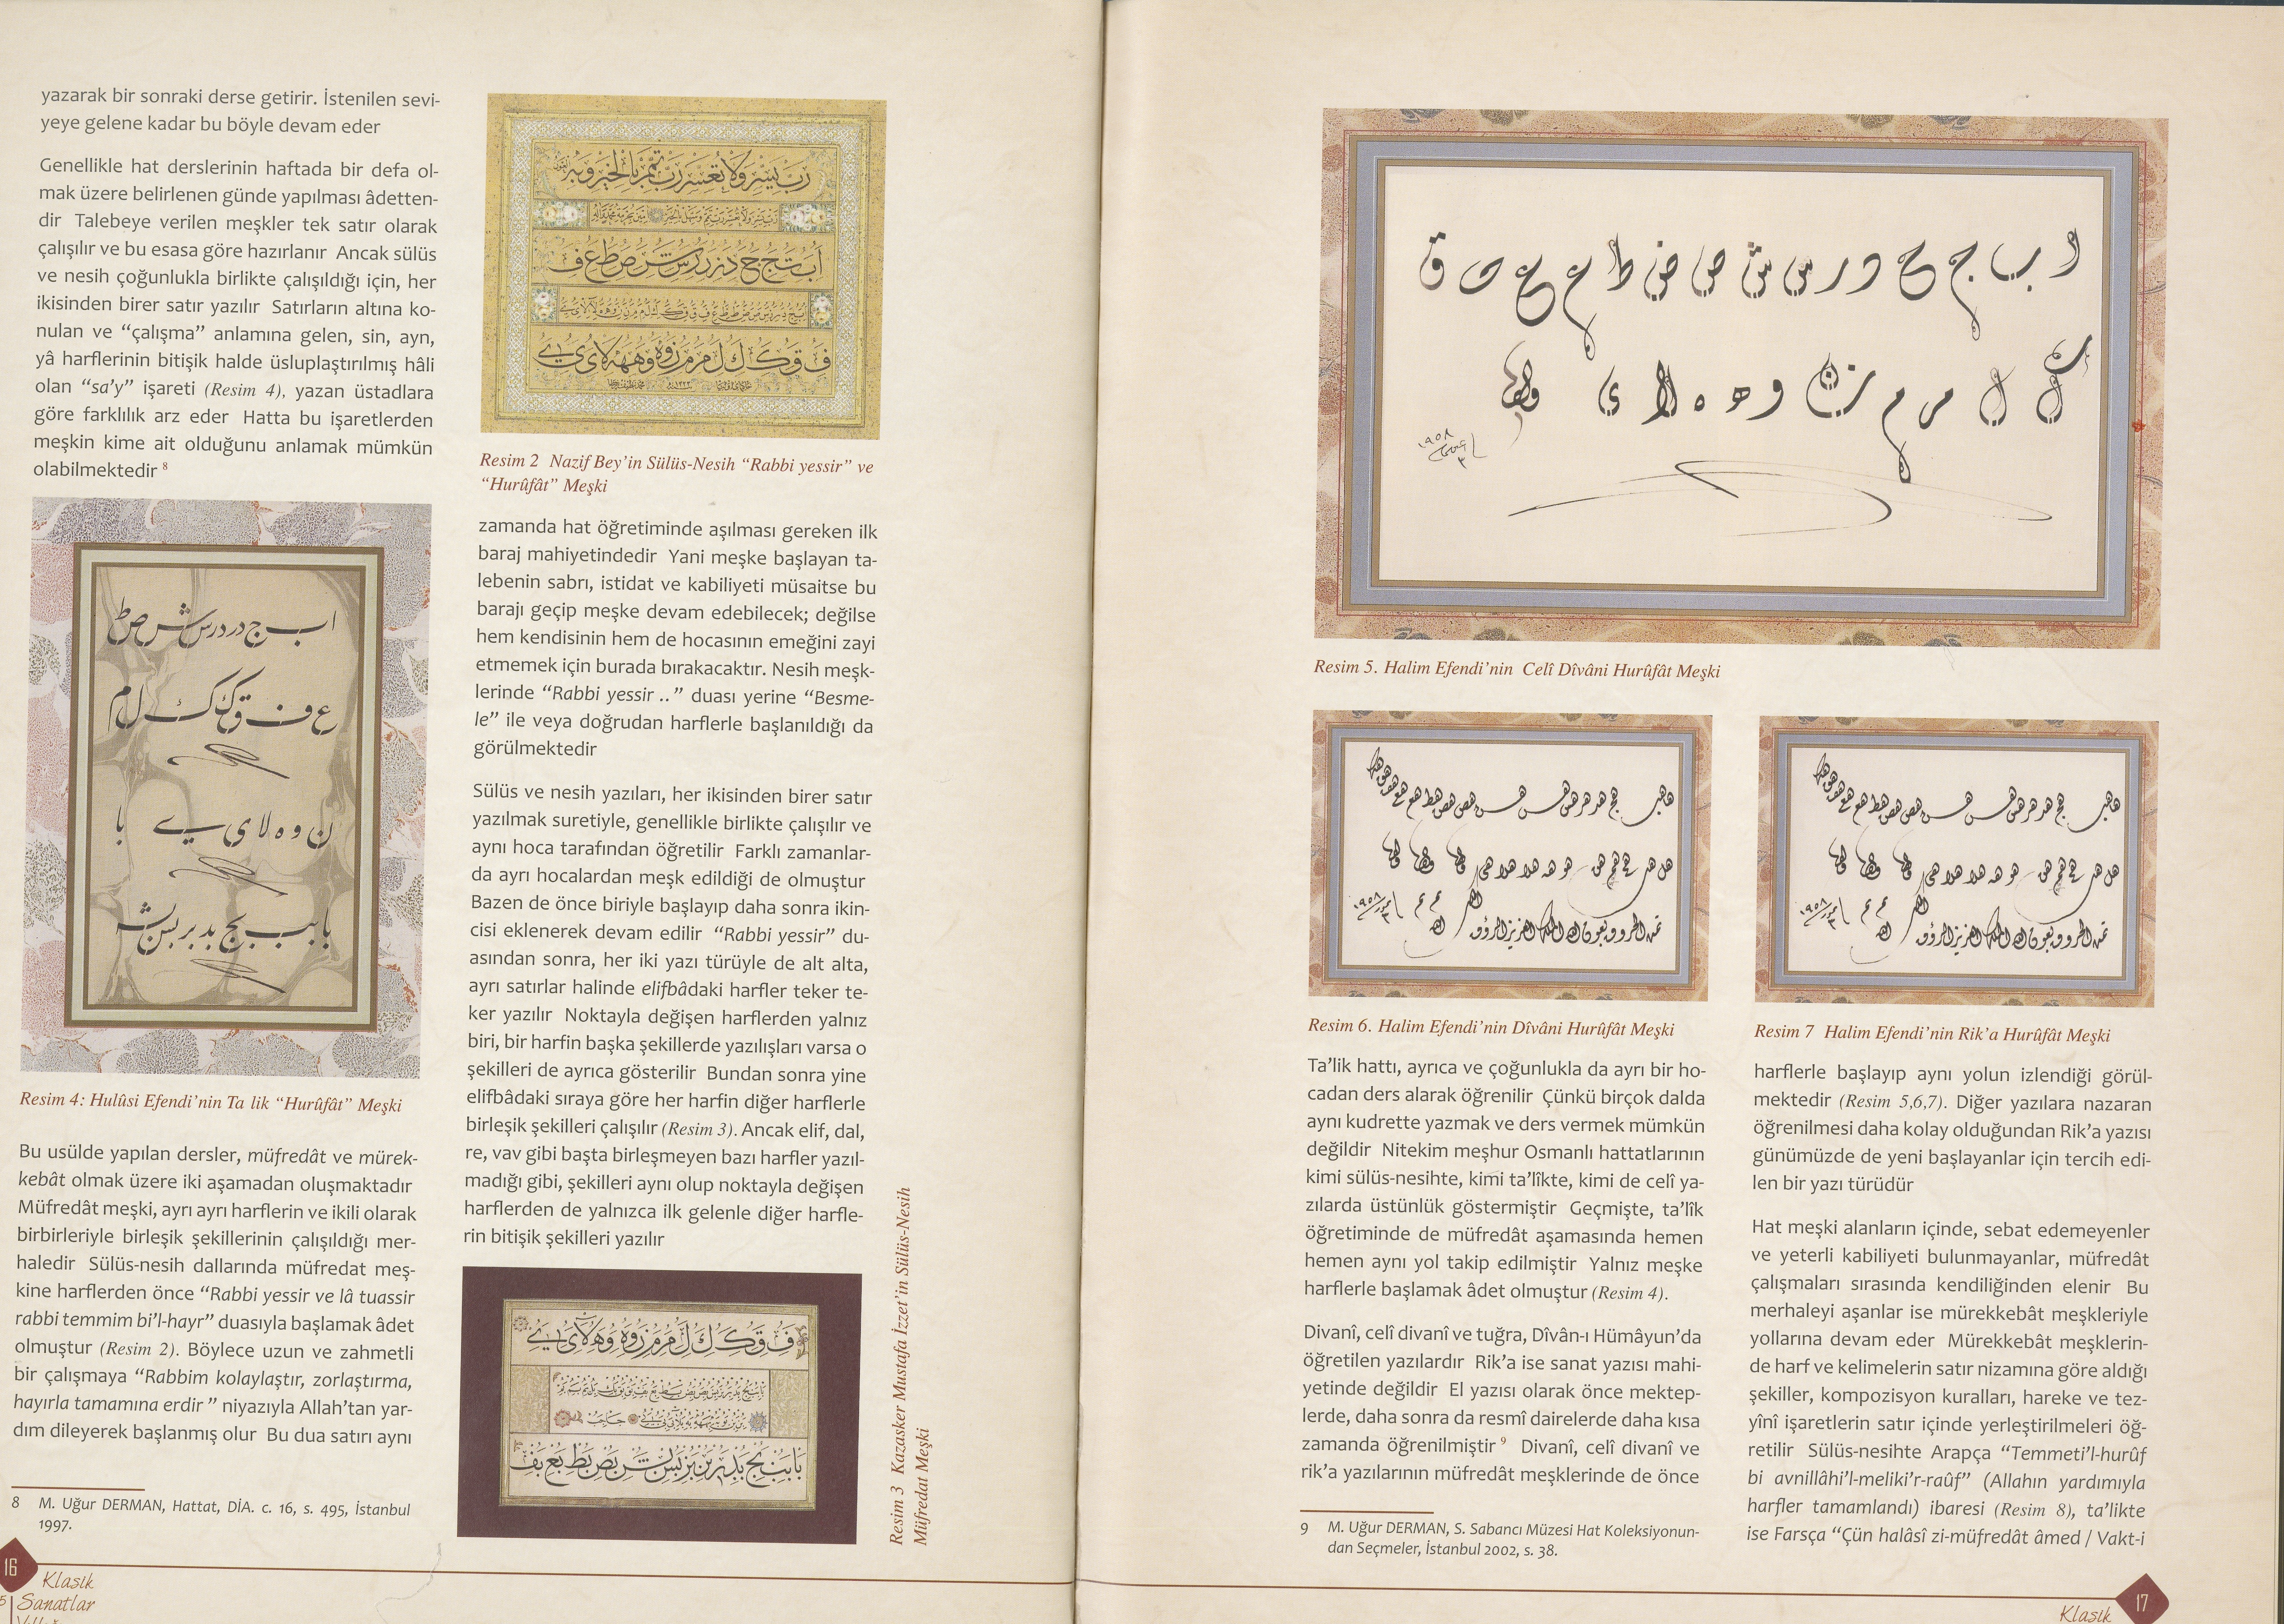 yazarak bir sonraki derse getirir. İstenilen sevi-
yeye gelene kadar bu böyle devam eder
Genellikle hat derslerinin haftada bir defa ol-
mak üzere belirlenen günde yapılması âdetten-
dir Talebeye verilen meşkler tek satır olarak
çalışılır ve bu esasa göre hazırlanır Ancak sülüs
ve nesih çoğunlukla birlikte çalışıldığı için, her
ikisinden birer satır yazılır Satırların altına ko-
nulan ve “çalışma” anlamına gelen, sin, ayn,
yâ harflerinin bitişik halde üsluplaştırılmış hâli
olan “sa’y” işareti (Resim 4), yazan üstadlara
göre farklılık arz eder Hatta bu işaretlerden
meşkin kime ait olduğunu anlamak mümkün
olabilmektedir 8
ا ب ج د ر س ش ص ط
ع ف ق ک ک ل م
ن و ه لا ی ے با
Resim 4: Hulûsi Efendi’nin Ta lik “Hurûfât” Meşki
Bu usülde yapılan dersler, müfredât ve mürek-
kebât olmak üzere iki aşamadan oluşmaktadır
Müfredât meşki, ayrı ayrı harflerin ve ikili olarak
birbirleriyle birleşik şekillerinin çalışıldığı mer-
haledir Sülüs-nesih dallarında müfredat meş-
kine harflerden önce “Rabbi yessir ve lâ tuassir
rabbi temmim bi’l-hayr” duasıyla başlamak âdet
olmuştur (Resim 2). Böylece uzun ve zahmetli
bir çalışmaya “Rabbim kolaylaştır, zorlaştırma,
hayırla tamamına erdir ” niyazıyla Allah’tan yar-
dım dileyerek başlanmış olur Bu dua satırı aynı
8 M. Uğur DERMAN, Hattat, DİA. c. 16, s. 495, İstanbul
1997.
16
Klasik
Sanatlar
رب يسر ولا تعسر رب تمم بالخير وبه
Resim 2 Nazif Bey’in Sülüs-Nesih “Rabbi yessir” ve
“Hurûfât” Meşki
zamanda hat öğretiminde aşılması gereken ilk
baraj mahiyetindedir Yani meşke başlayan ta-
lebenin sabrı, istidat ve kabiliyeti müsaitse bu
barajı geçip meşke devam edebilecek; değilse
hem kendisinin hem de hocasının emeğini zayi
etmemek için burada bırakacaktır. Nesih meşk-
lerinde “Rabbi yessir ..” duası yerine “Besme-
le” ile veya doğrudan harflerle başlanıldığı da
görülmektedir
Sülüs ve nesih yazıları, her ikisinden birer satır
yazılmak suretiyle, genellikle birlikte çalışılır ve
aynı hoca tarafından öğretilir Farklı zamanlar-
da ayrı hocalardan meşk edildiği de olmuştur
Bazen de önce biriyle başlayıp daha sonra ikin-
cisi eklenerek devam edilir “Rabbi yessir” du-
asından sonra, her iki yazı türüyle de alt alta,
ayrı satırlar halinde elifbâdaki harfler teker te-
ker yazılır Noktayla değişen harflerden yalnız
biri, bir harfin başka şekillerde yazılışları varsa o
şekilleri de ayrıca gösterilir Bundan sonra yine
elifbâdaki sıraya göre her harfin diğer harflerle
birleşik şekilleri çalışılır (Resim 3). Ancak elif, dal,
re, vav gibi başta birleşmeyen bazı harfler yazıl-
madığı gibi, şekilleri aynı olup noktayla değişen
harflerden de yalnızca ilk gelenle diğer harfle-
rin bitişik şekilleri yazılır
Resim 3 Kazasker Mustafa İzzet’in Sülüs-Nesih
Müfredat Meşki
Resim 5. Halim Efendi’nin Celî Dîvâni Hurûfât Meşki
Resim 6. Halim Efendi’nin Dîvâni Hurûfât Meşki
Ta’lik hattı, ayrıca ve çoğunlukla da ayrı bir ho-
cadan ders alarak öğrenilir Çünkü birçok dalda
aynı kudrette yazmak ve ders vermek mümkün
değildir Nitekim meşhur Osmanlı hattatlarının
kimi sülüs-nesihte, kimi ta’lîkte, kimi de celî ya-
zılarda üstünlük göstermiştir Geçmişte, ta’lîk
öğretiminde de müfredât aşamasında hemen
hemen aynı yol takip edilmiştir Yalnız meşke
harflerle başlamak âdet olmuştur (Resim 4).
Divanî, celî divanî ve tuğra, Dîvân-ı Hümâyun’da
öğretilen yazılardır Rik’a ise sanat yazısı mahi-
yetinde değildir El yazısı olarak önce mektep-
lerde, daha sonra da resmî dairelerde daha kısa
zamanda öğrenilmiştir 9 Divanî, celî divanî ve
rik’a yazılarının müfredât meşklerinde de önce
9 M. Uğur DERMAN, S. Sabancı Müzesi Hat Koleksiyonun-
dan Seçmeler, İstanbul 2002, s. 38.
Resim 7 Halim Efendi’nin Rik’a Hurûfât Meşki
harflerle başlayıp aynı yolun izlendiği görül-
mektedir (Resim 5,6,7). Diğer yazılara nazaran
öğrenilmesi daha kolay olduğundan Rik’a yazısı
günümüzde de yeni başlayanlar için tercih edi-
len bir yazı türüdür
Hat meşki alanların içinde, sebat edemeyenler
ve yeterli kabiliyeti bulunmayanlar, müfredât
çalışmaları sırasında kendiliğinden elenir Bu
merhaleyi aşanlar ise mürekkebât meşkleriyle
yollarına devam eder Mürekkebât meşklerin-
de harf ve kelimelerin satır nizamına göre aldığı
şekiller, kompozisyon kuralları, hareke ve tez-
yînî işaretlerin satır içinde yerleştirilmeleri öğ-
retilir Sülüs-nesihte Arapça “Temmeti’l-hurûf
bi avnillâhi’l-meliki’r-raûf” (Allahın yardımıyla
harfler tamamlandı) ibaresi (Resim 8), ta’likte
ise Farsça “Çün halâsî zi-müfredât âmed / Vakt-i
Klasik
17